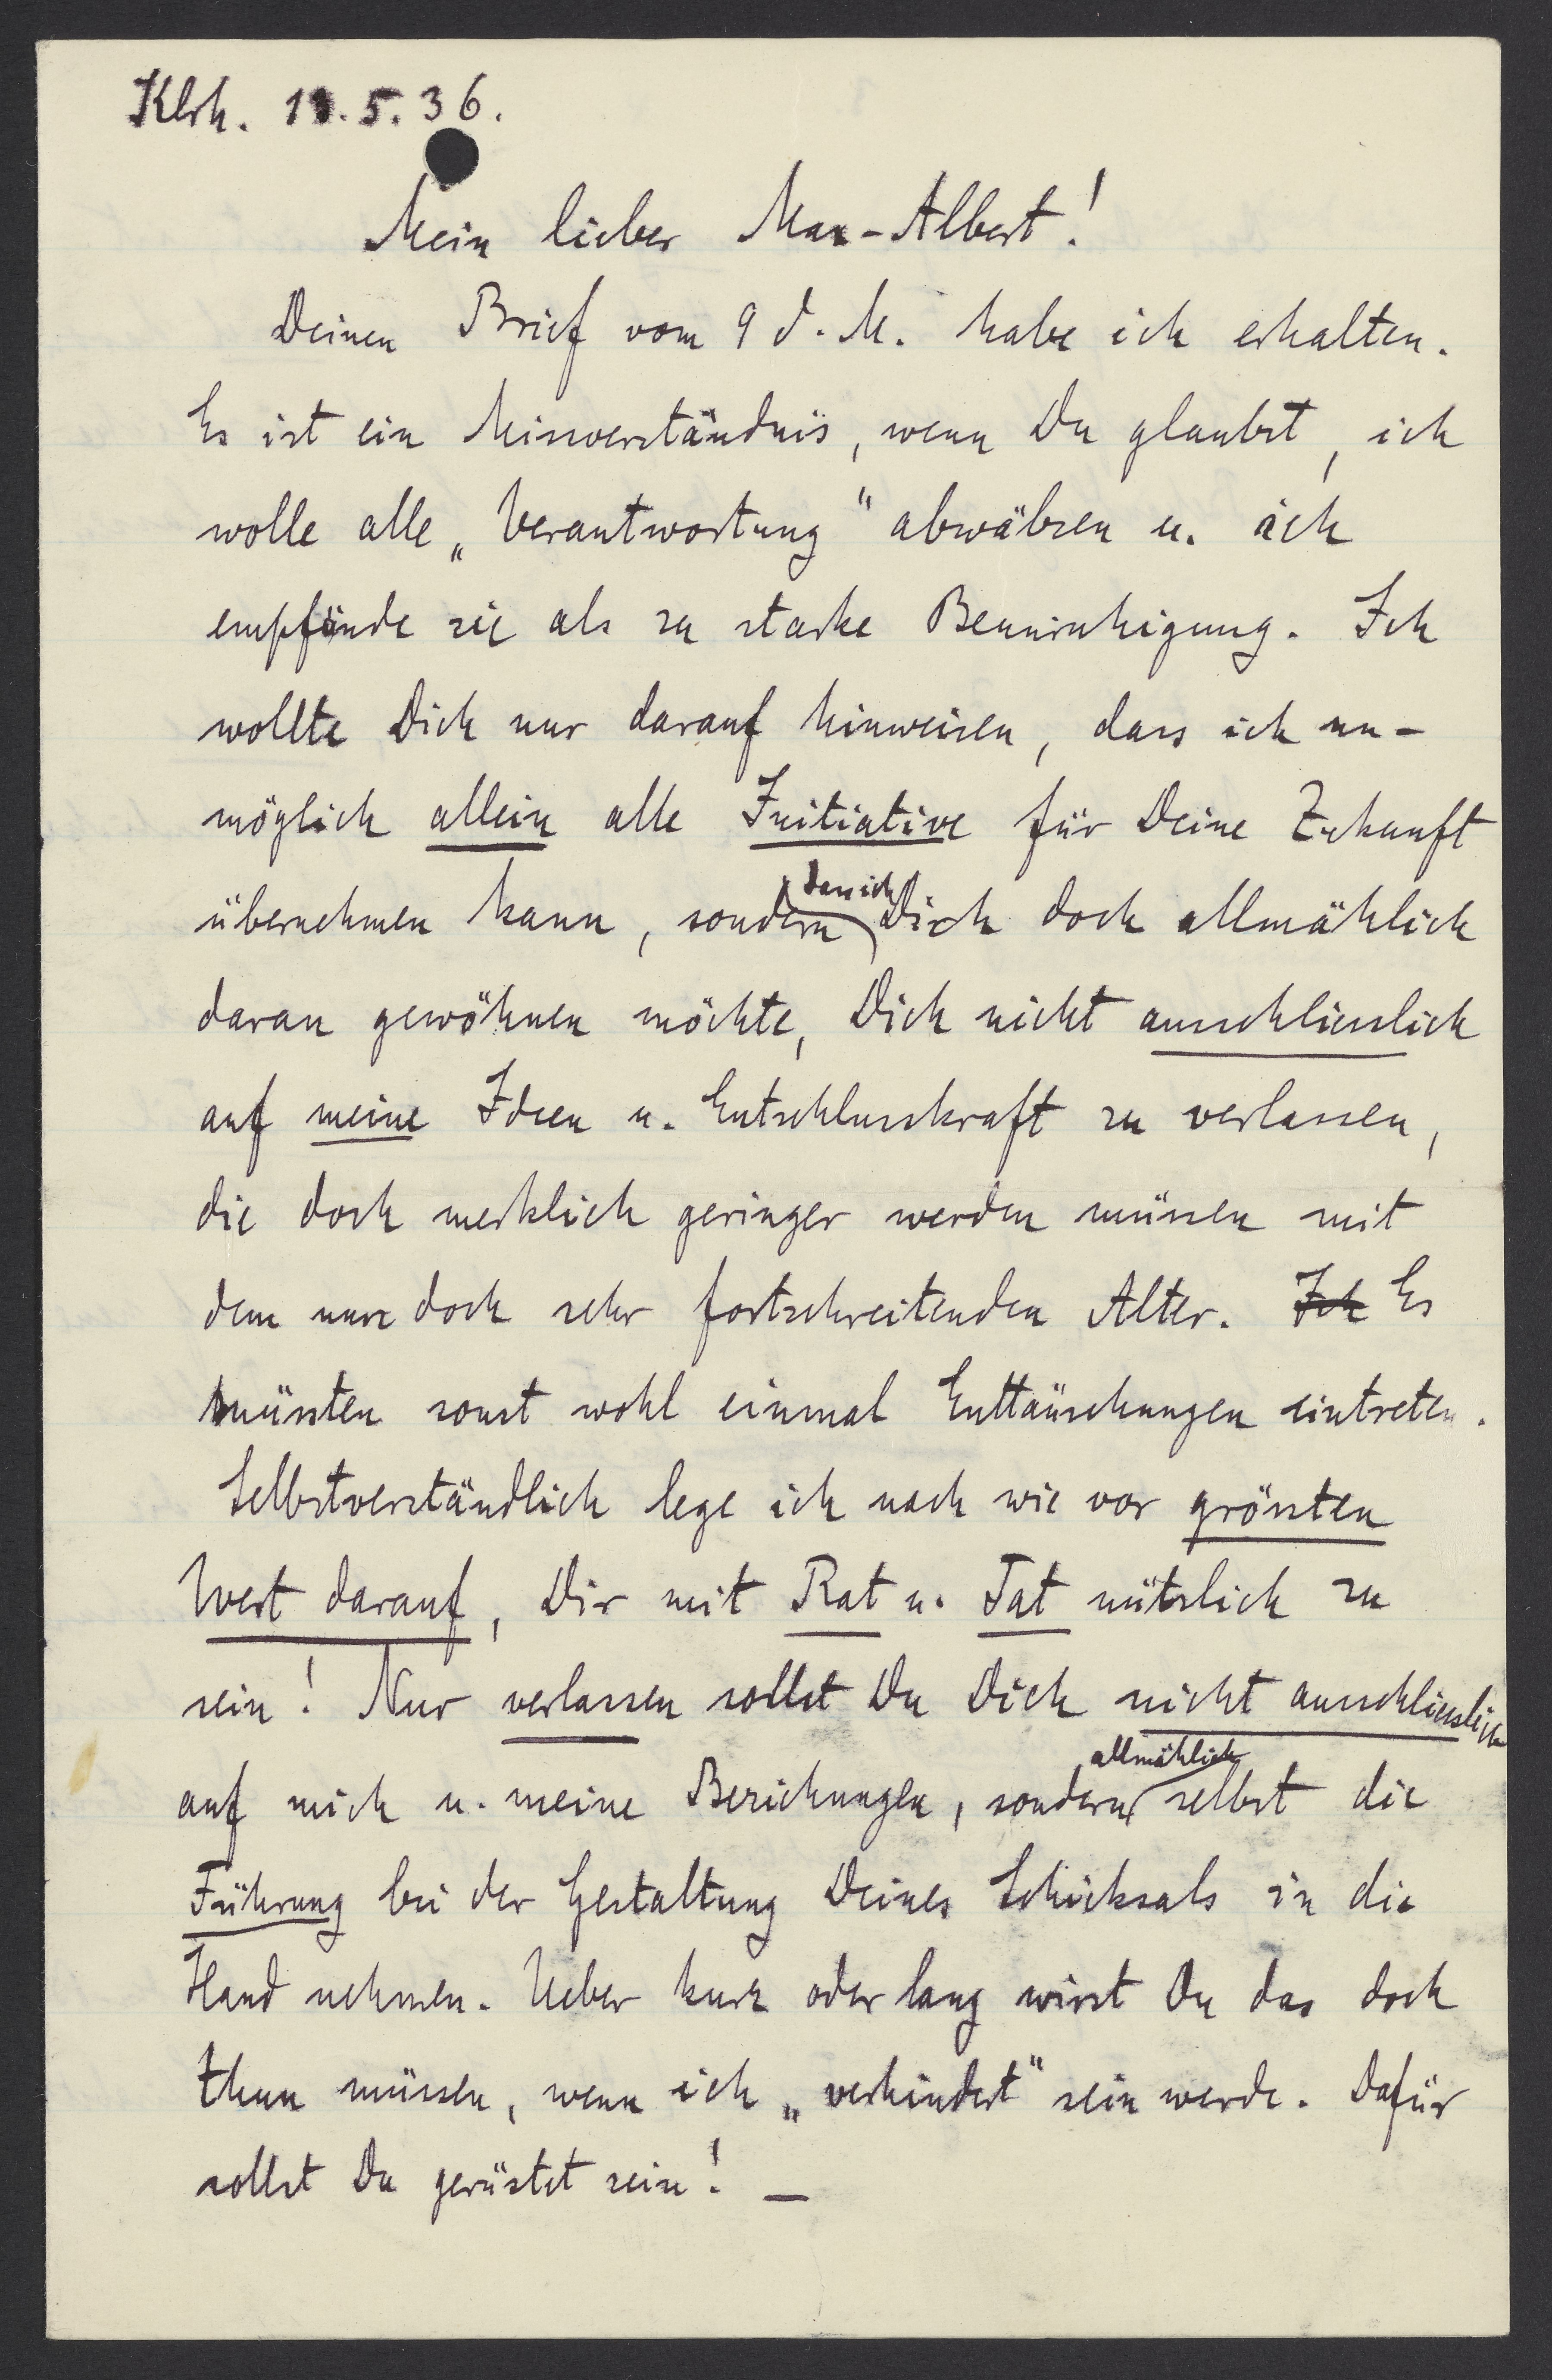 Klsh. 11.5.36.
Mein lieber Max-Albert!
Deinen Brief vom 9 d. M. habe ich erhalten.
Es ist ein Missverständnis, wenn Du glaubst, ich
wolle alle „Verantwortung" abwälzen u. ich
empfände sie als zu starke Beunruhigung. Ich
wollte Dich nur darauf hinweisen, dass ich un-
möglich allein alle Initiative für Deine Zukunft
übernehmen kann, sondern dass ich Dich doch allmählich
daran gewöhnen möchte, Dich nicht ausschliesslich
auf meine Ideen u. Entschlusskraft zu verlassen,
die doch merklich geringer werden müssen mit
dem nun doch sehr fortschreitenden Alter. Ich Es
müssten sonst wohl einmal Enttäuschungen eintreten.
Selbstverständlich lege ich nach wie vor grössten
Wert darauf, Dir mit Rat u. Tat nützlich zu
sein! Nur verlassen sollst Du Dich nicht ausschliesslich
auf mich u. meine Beziehungen, sondern allmählich selbst die
Führung bei der Gestaltung Deines Schicksals in die
Hand nehmen. Ueber kurz oder lang wirst Du das doch
thun müssen, wenn ich „verhindert" sein werde. Dafür
sollst Du gerüstet sein! —